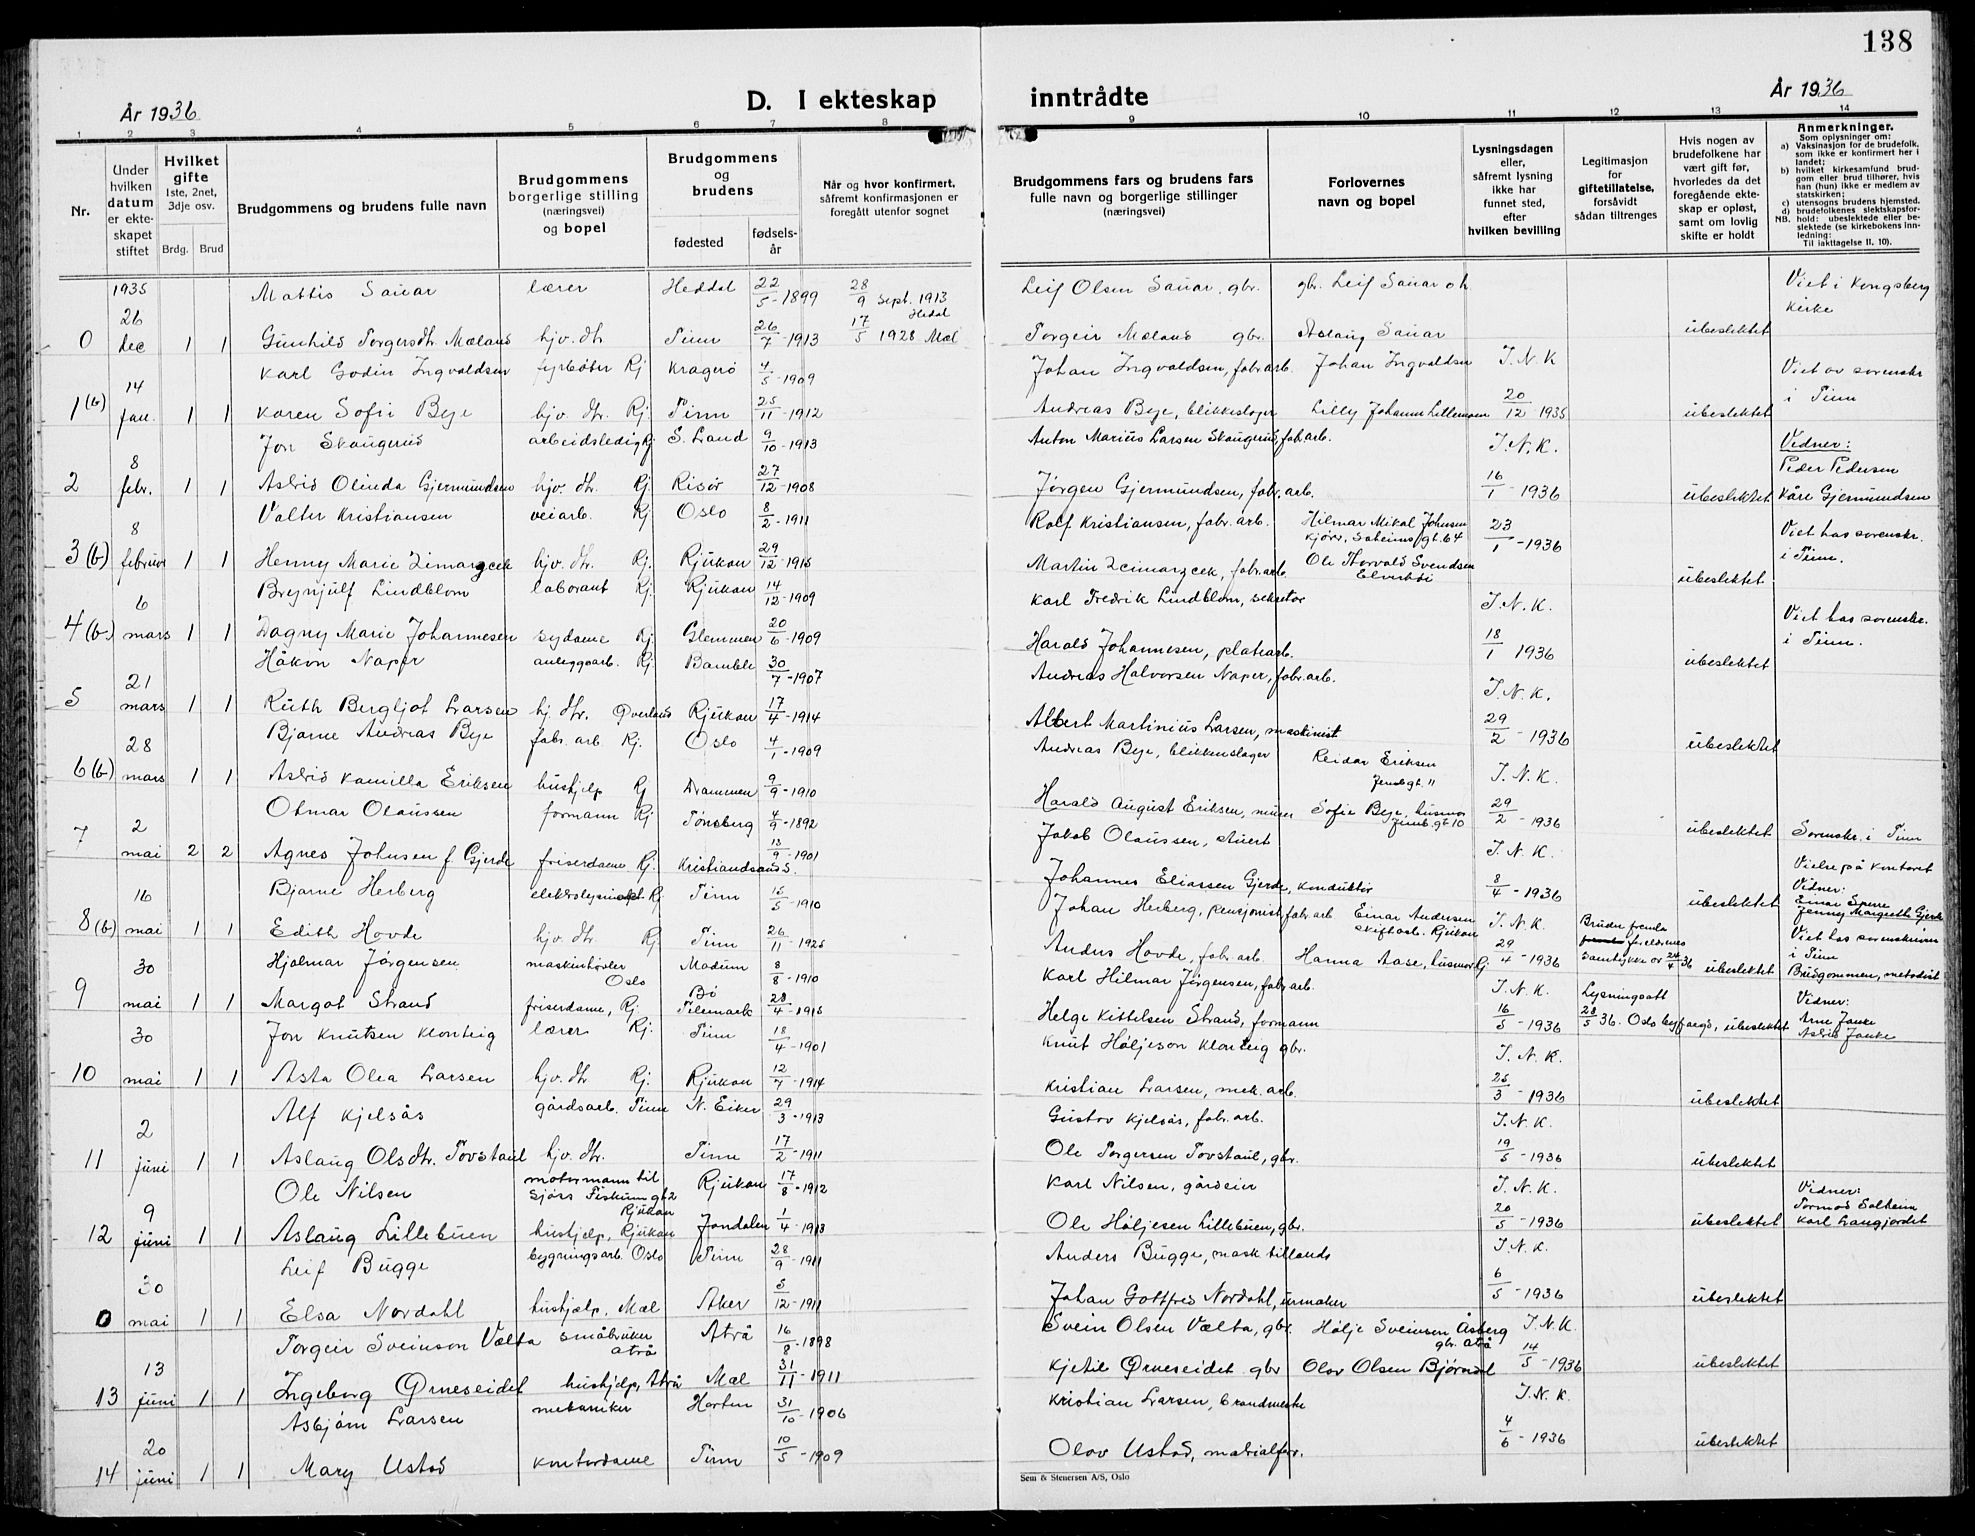 138
År 1936
D. I ekteskap inntrådte
År 1936
1 2 3 4 5 6 7 8 9 10 11 12 13 14
Nr.
Under hvilken datum er ekteskapet stiftet
Hvilket gifte 1ste, 2net, 3dje osv.
Brdg. Brud
Brudgommens og brudens fulle navn
Brudgommens borgerlige stilling (næringsvei) og bopel
Brudgommens og brudens
fødested
fødselsår
Når og hvor konfirmert, såfremt konfirmasjonen er foregått utenfor sognet
Brudgommens fars og brudens fars fulle navn og borgerlige stillinger (næringsvei)
Forlovernes navn og bopel
Lysningsdagen eller, såfremt lysning ikke har funnet sted, efter hvilken bevilling
Legitimasjon for giftetillatelse, forsåvidt sådan tiltrenges
Hvis nogen av brudefolkene har vært gift før, hvorledes da det foregående ekteskap er opløst, samt om lovlig skifte er holdt
Anmerkninger.
Som oplysninger om:
a) Vaksinasjon for de brudefolk, som ikke er konfirmert her i landet;
b) hvilket kirkesamfund brudgom eller brud tilhører, hvis han (hun) ikke er medlem av statskirken;
c) utensogns brudens hjemsted.
d) brudefolkenes slektskapsforhold: ubeslektede eller beslektede (se kirkebokens innledning:
NB.
Til iakttagelse II. 10).
1935 Mattis Sauar lærer Heddal 22/5-1899 28/9 sept. 1913 Hedal Leif Olsen Sauar, gbr. gbr. Leif Sauar o.h. Viet i Kongsberg Kirke
0 26 dec 1 1 Gunhild Torgersdtr. Mæland hjv. dtr Tinn 26/7-1913 17/5 1928 Mæl Torgeir Mæland gbr. Aslaug Sauar ubeslektet
14 Karl Godin Ingvaldsen fyrbøter Rj Kragerø 4/5-1909 Johan Ingvaldsen, fabr.arb. Johan Ingvaldsen I.N.K Viet av sorenskr. i Tinn
1(b) jan. 1 1 Karen Sofie Bye hjv. dtr. Rj. Tinn 25/11-1912 Andreas Bye, blikkeslager Lilly Johanne Lillemoen 20/12-1935 ubeslektet
8 Jon Skaugerud arbeidsledig Rj S. Land 9/10-1913 Anton Marius Larsen Skaugerud, fab.arb. I.N.K. Vidner: Peder Pedersen
2 febr. 1 1 Astrid Olinda Gjermundsen hjv. dtr. Rj. Risør 27/12-1908 Jørgen Gjermundsen, fabr.arb. 16/1-1936 ubeslektet Kåre Gjermundsen
8 Valter Kristiansen veiarb. Rj Oslo 8/2-1911 Rolf Kristiansen, fabr.arb. Hilmar Mikal Johnsen kjører, Saheims gt. 64 23/1-1936 Viet hos sorenskr. i Tinn.
3(b) februar 1 1 Henny Marie Zimarzcek hjv. dtr. Rj. Rjukan 29/12-1915 Martin Zcimarzcek, fabr.arb Ole Thorvald Svendsen ubeslektet
6 Brynjulf Lindblom laborant Rj. Rjukan 14/12-1909 Karl Fredrik Lindblom, sekretær I.N.K. Viet hos sorenskr. i Tinn.
4(b) mars 1 1 Dagny Marie Johannesen sydame Rj. Glemmen 20/6-1909 Harald Johannesen, platearb. 18/1 1936 ubeslektet
21 Håkon Naper anleggsarb. Rj. Bamble 30/7-1907 Andreas Halvorsen Naper, fabr.arb. I.N.K.
5 mars 1 1 Ruth Bergljot Larsen hj. dtr. Øverland Rjukan 17/4-1914 Albert Martinius Larsen, maskinist 29/2-1936 ubeslektet
28 Bjarne Andreas Bye fabr.arb. Rj. Oslo 4/1-1909 Andreas Bye, blikkenslager Reidar Eriksen I.N.K.
6(b) mars 1 1 Astrid Kamilla Eriksen hushjelp Rj Drammen 9/9-1910 Harald August Eriksen, murer Sofie Bye, husmor 29/2-1936 ubeslektet Sorenskr. i Tinn
2 Otmar Olaussen formann Rj Tønsberg 4/9-1892 Jakob Olaussen, stuert I.N.K.
7 mai 2 2 Agnes Johnsen f. Gjerde friserdame Rj. Kristiandsand S. 13/9-1901 Johannes Eliassen Gjerde, konduktør 8/4-1936 ubeslektet Vielse på kontoret Vidner: Jenny Margrethe Gjerde
16 Bjarne Herberg Rj Tinn 15/5-1910 Johan Herberg, pensjonist fabr.arb Einar Andersen skiftarb. Rjukan I.N.K. Bruden fremla foreldrenes samtykke av 24/4 36 Viet hos sorenskriveren i Tinn
8(b) mai 1 1 Edith Hovde hjv. dtr. Rj. Tinn 26/11-1925 Anders Hovde, fabr.arb. Hanna Aase, husmor Rj 29/4-1936 ubeslektet
30 Hjalmar Jørgensen maskinhøvler Oslo Modum 8/8-1910 Karl Hilmar Jørgensen, fabr.arb. I.N.K. Lysningsatt 28/5 36. Oslo byfogd, Brudgommen, metodist
9 mai 1 1 Margot Strand friserdame, Rj. Bø Telemark 28/4-1915 Helge Kittelsen Strand, formann 16/5-1936 ubeslektet Vidner: Arne Janke Astrid Janke
30 Jon Knutsen Klonteig lærer Rj. Tinn 18/4-1901 Knut Høljeson Klonteig gbr. I.N.K.
10 mai 1 1 Asta Olea Larsen hjv. dtr Rj. Rjukan 12/7-1914 Kristian Larsen, mek.arb. 25/3-1936 ubeslektet
2 Alf Kjelsås gårdsarb. Tinn N. Eiker 29/3-1913 Gustav Kjelsås, fabr.arb. I.N.K.
11 juni 1 1 Aslaug Olsdtr. Tovstaul hjv. dtr. Tinn 17/2-1911 Ole Torgersen Tovstaul, gbr. 19/5-1936 ubeslektet
9 Ole Nilsen motormann til sjøss Fiskum gt 2 Rjukan Rjukan 17/8-1912 Karl Nilsen, gårdeier I.N.K. Vidner: Tormod Solheim Karl Langjordet
12 juni 1 1 Aslaug Lillebuen hushjelp, Rjukan Jondalen 1/4-1913 Ole Høljesen Lillebuen, gbr. 20/5-1936 ubeslektet
30 Leif Bugge bygningsarb. Oslo Tinn 28/9-1911 Anders Bugge, mask tillands I.N.K.
0 mai 1 1 Elsa Nordahl hushjelp, Mæl Aker 5/12-1911 Johan Gottfred Nordahl, urmaker 6/5-1936 ubeslektet
13 Torgeir Sveinson Vælta småbruker Atrå Atrå 16/8-1898 Svein Olsen Vælta, gbr. Hølje Sveinsen Åsberg gbr. Atrå I.N.K.
13 juni 1 1 Ingeborg Ørneseidet hushjelp, Atrå Mæl 31/11-1911 Kjetil Ørneseidet gbr Olav Olsen Bjørndal 14/5-1936 ubeslektet
20 Asbjørn Larsen mekaniker Horten 31/10-1906 Kristian Larsen, brandmester I.N.K.
14 juni 1 1 Mary Ustad kontordame Tinn 10/5-1909 Olav Ustad, matrialforv. 4/6-1936 ubeslektet
Sem & Stenersen A/S, Oslo